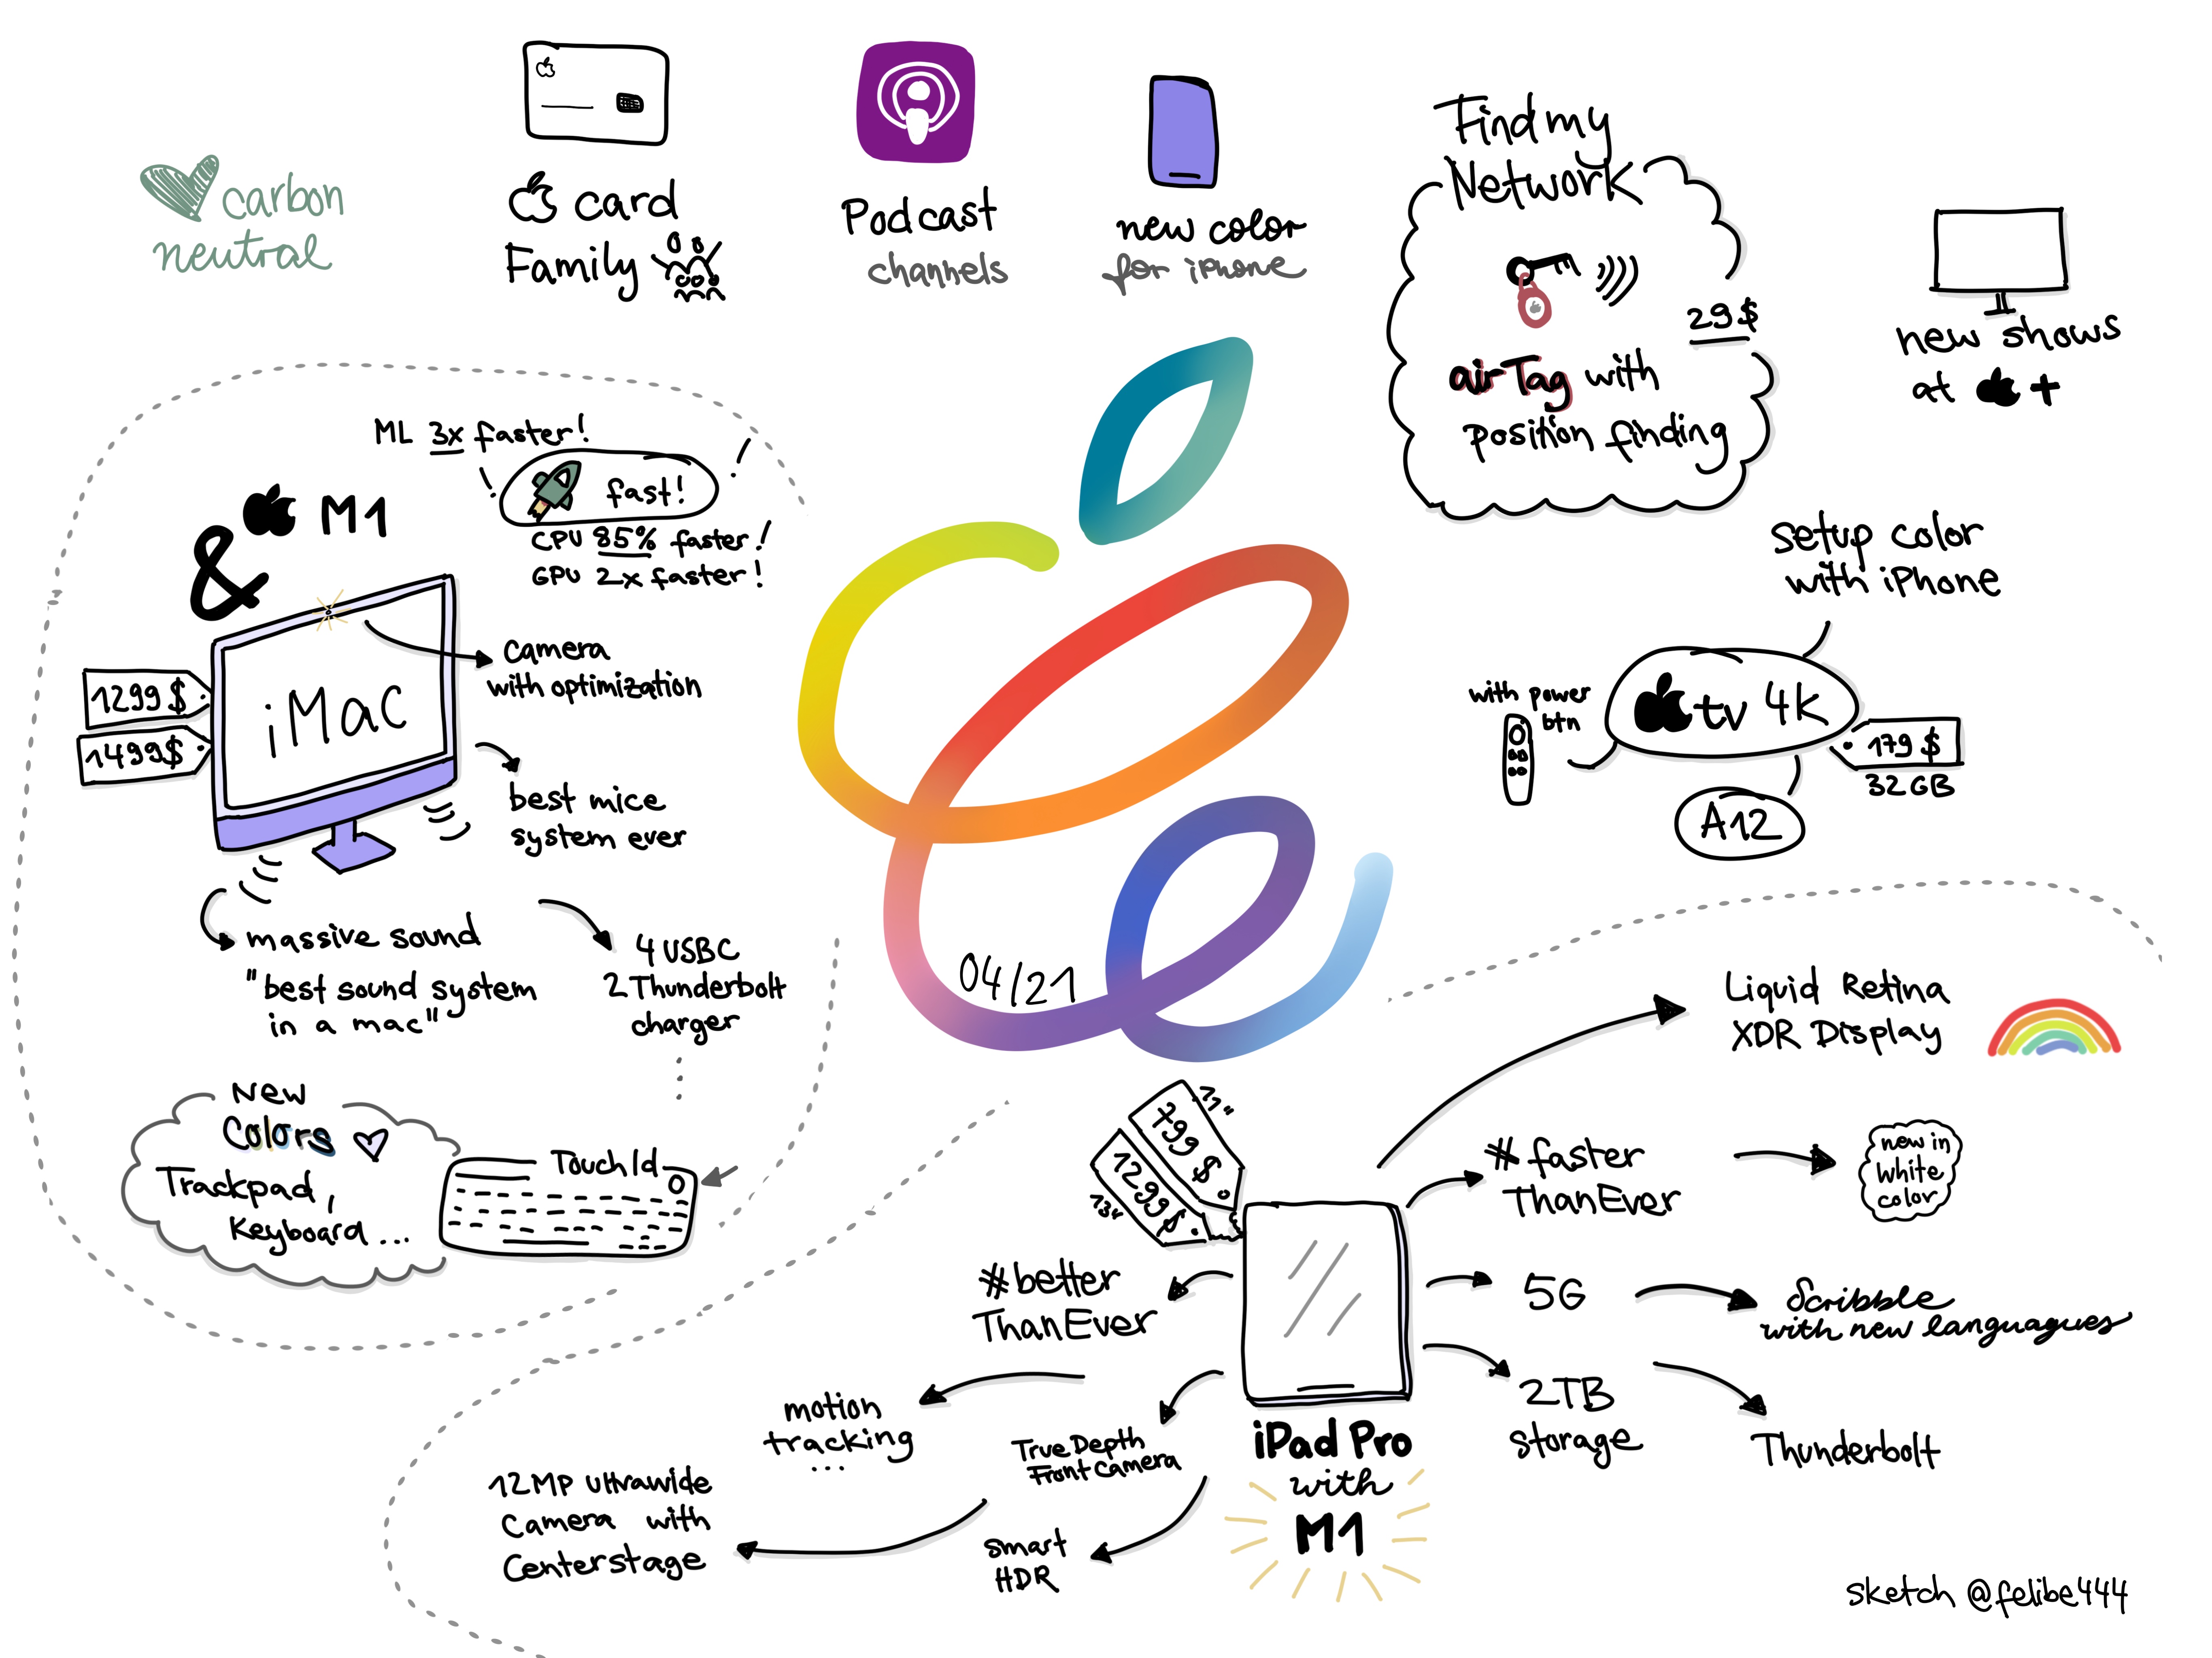 carbon
neutral
card
Family
Podcast
channels
new color
for iPhone
Find my
Network
29$
airTag with
position finding
new shows
at +
ML 3x faster!
fast!
CPU 85% faster!
GPU 2x faster!
& M1
iMac
1299$
1499$
camera
with optimization
best mice
system ever
massive sound
"best sound system
in a mac"
4 USBC
2 Thunderbolt
charger
New
Colors
Trackpad,
Keyboard ...
Touch Id
04/21
setup color
with iPhone
with power
btn
tv 4k
179 $
32GB
A12
Liquid Retina
XDR Display
#faster
ThanEver
new in
white
color
5G
Scribble
with new languagues
2TB
storage
Thunderbolt
799 $
1299$
#better
ThanEver
motion
tracking
...
TrueDepth
Front Camera
12MP Ultrawide
Camera with
Centerstage
smart
HDR
iPad Pro
with
M1
sketch @felibe444